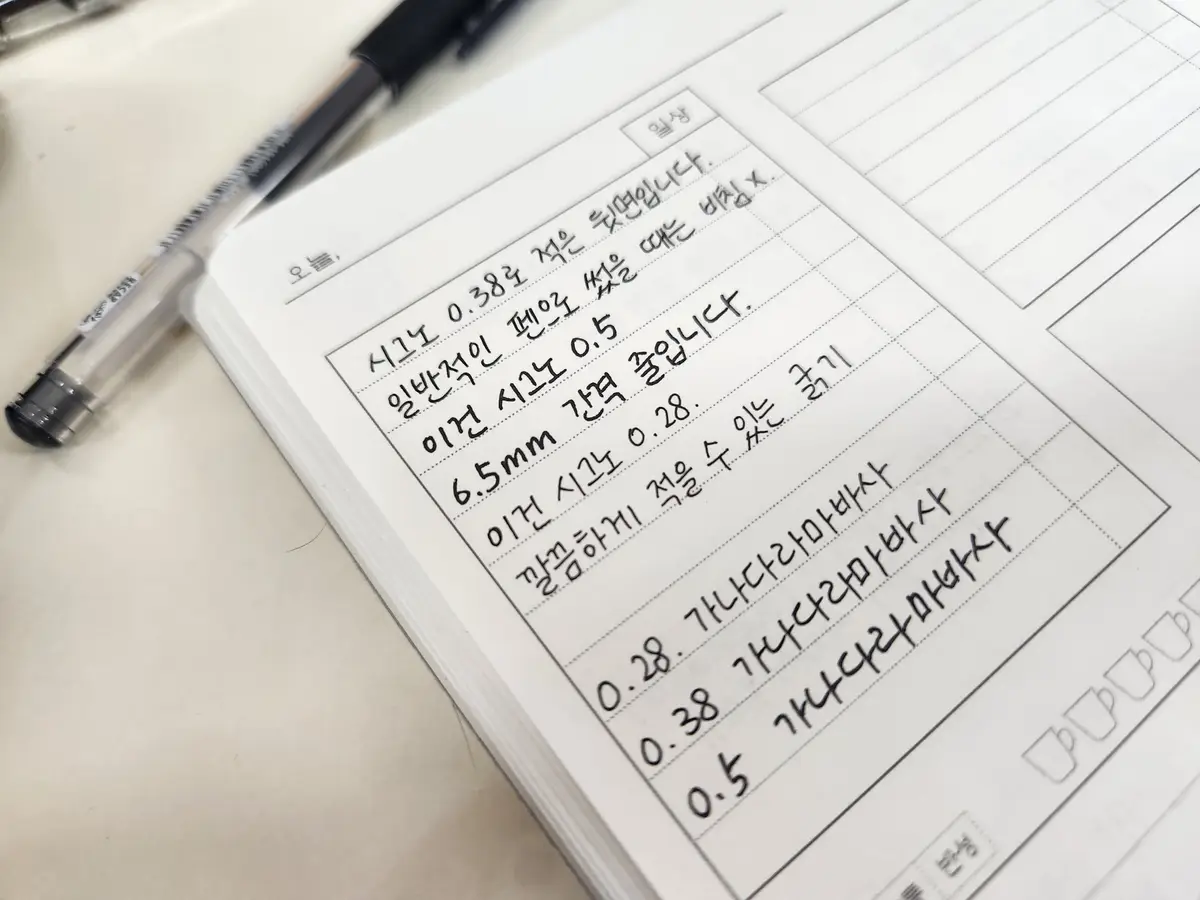 오늘,
일상
시그노 0.38로 적은 뒷면입니다.
일반적인 펜으로 썼을 때는 비침 x.
이건 시그노 0.5
6.5mm 간격 줄입니다.
이건 시그노 0.28.
깔끔하게 적을 수 있는 굵기
0.28. 가나다라마바사
0.38 가나다라마바사
0.5 가나다라마바사
반성